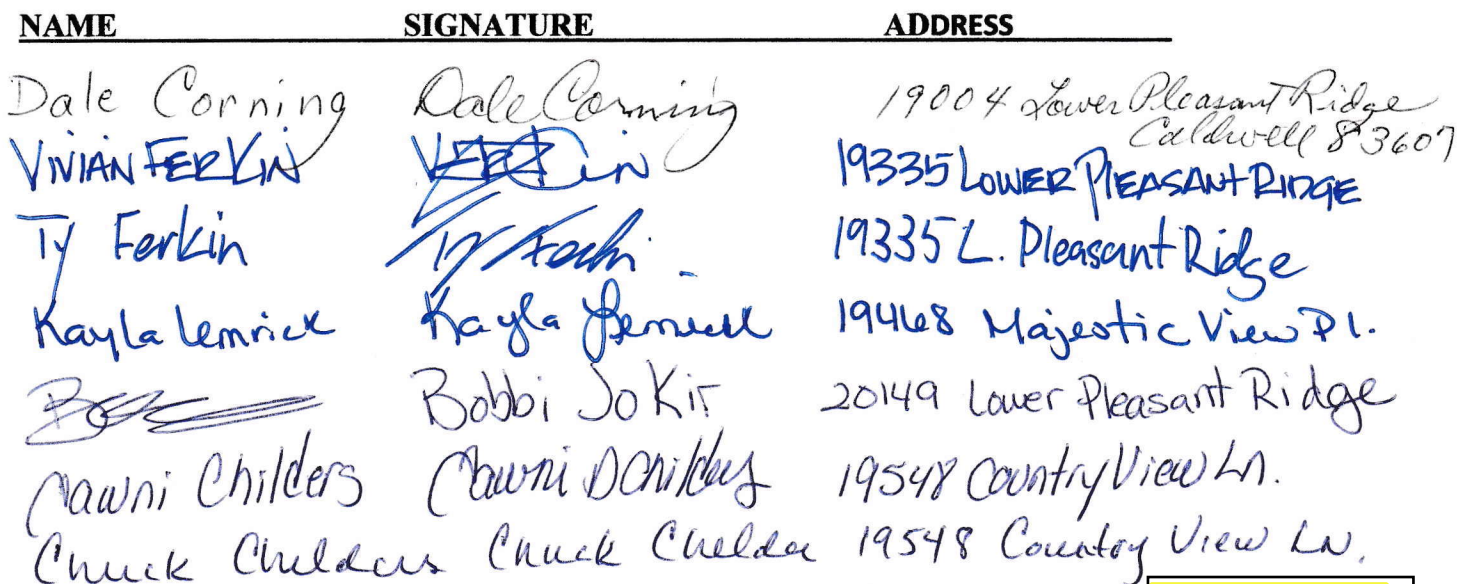 NAME SIGNATURE ADDRESS
Dale Corning Dale Corning 19004 Lower Pleasant Ridge
Caldwell 83607
VIVIAN FERKIN 19335 LOWER PLEASANT RIDGE
Ty Ferkin Ty Ferkin 19335 L. Pleasant Ridge
Kayla Lemrick Kayla Lemrick 19468 Majestic View Pl.
Bobbi Jo Kir 20149 Lower Pleasant Ridge
Childers Childers 19548 Country View Ln.
Chuck Childers Chuck Childers 19548 Country View LN.